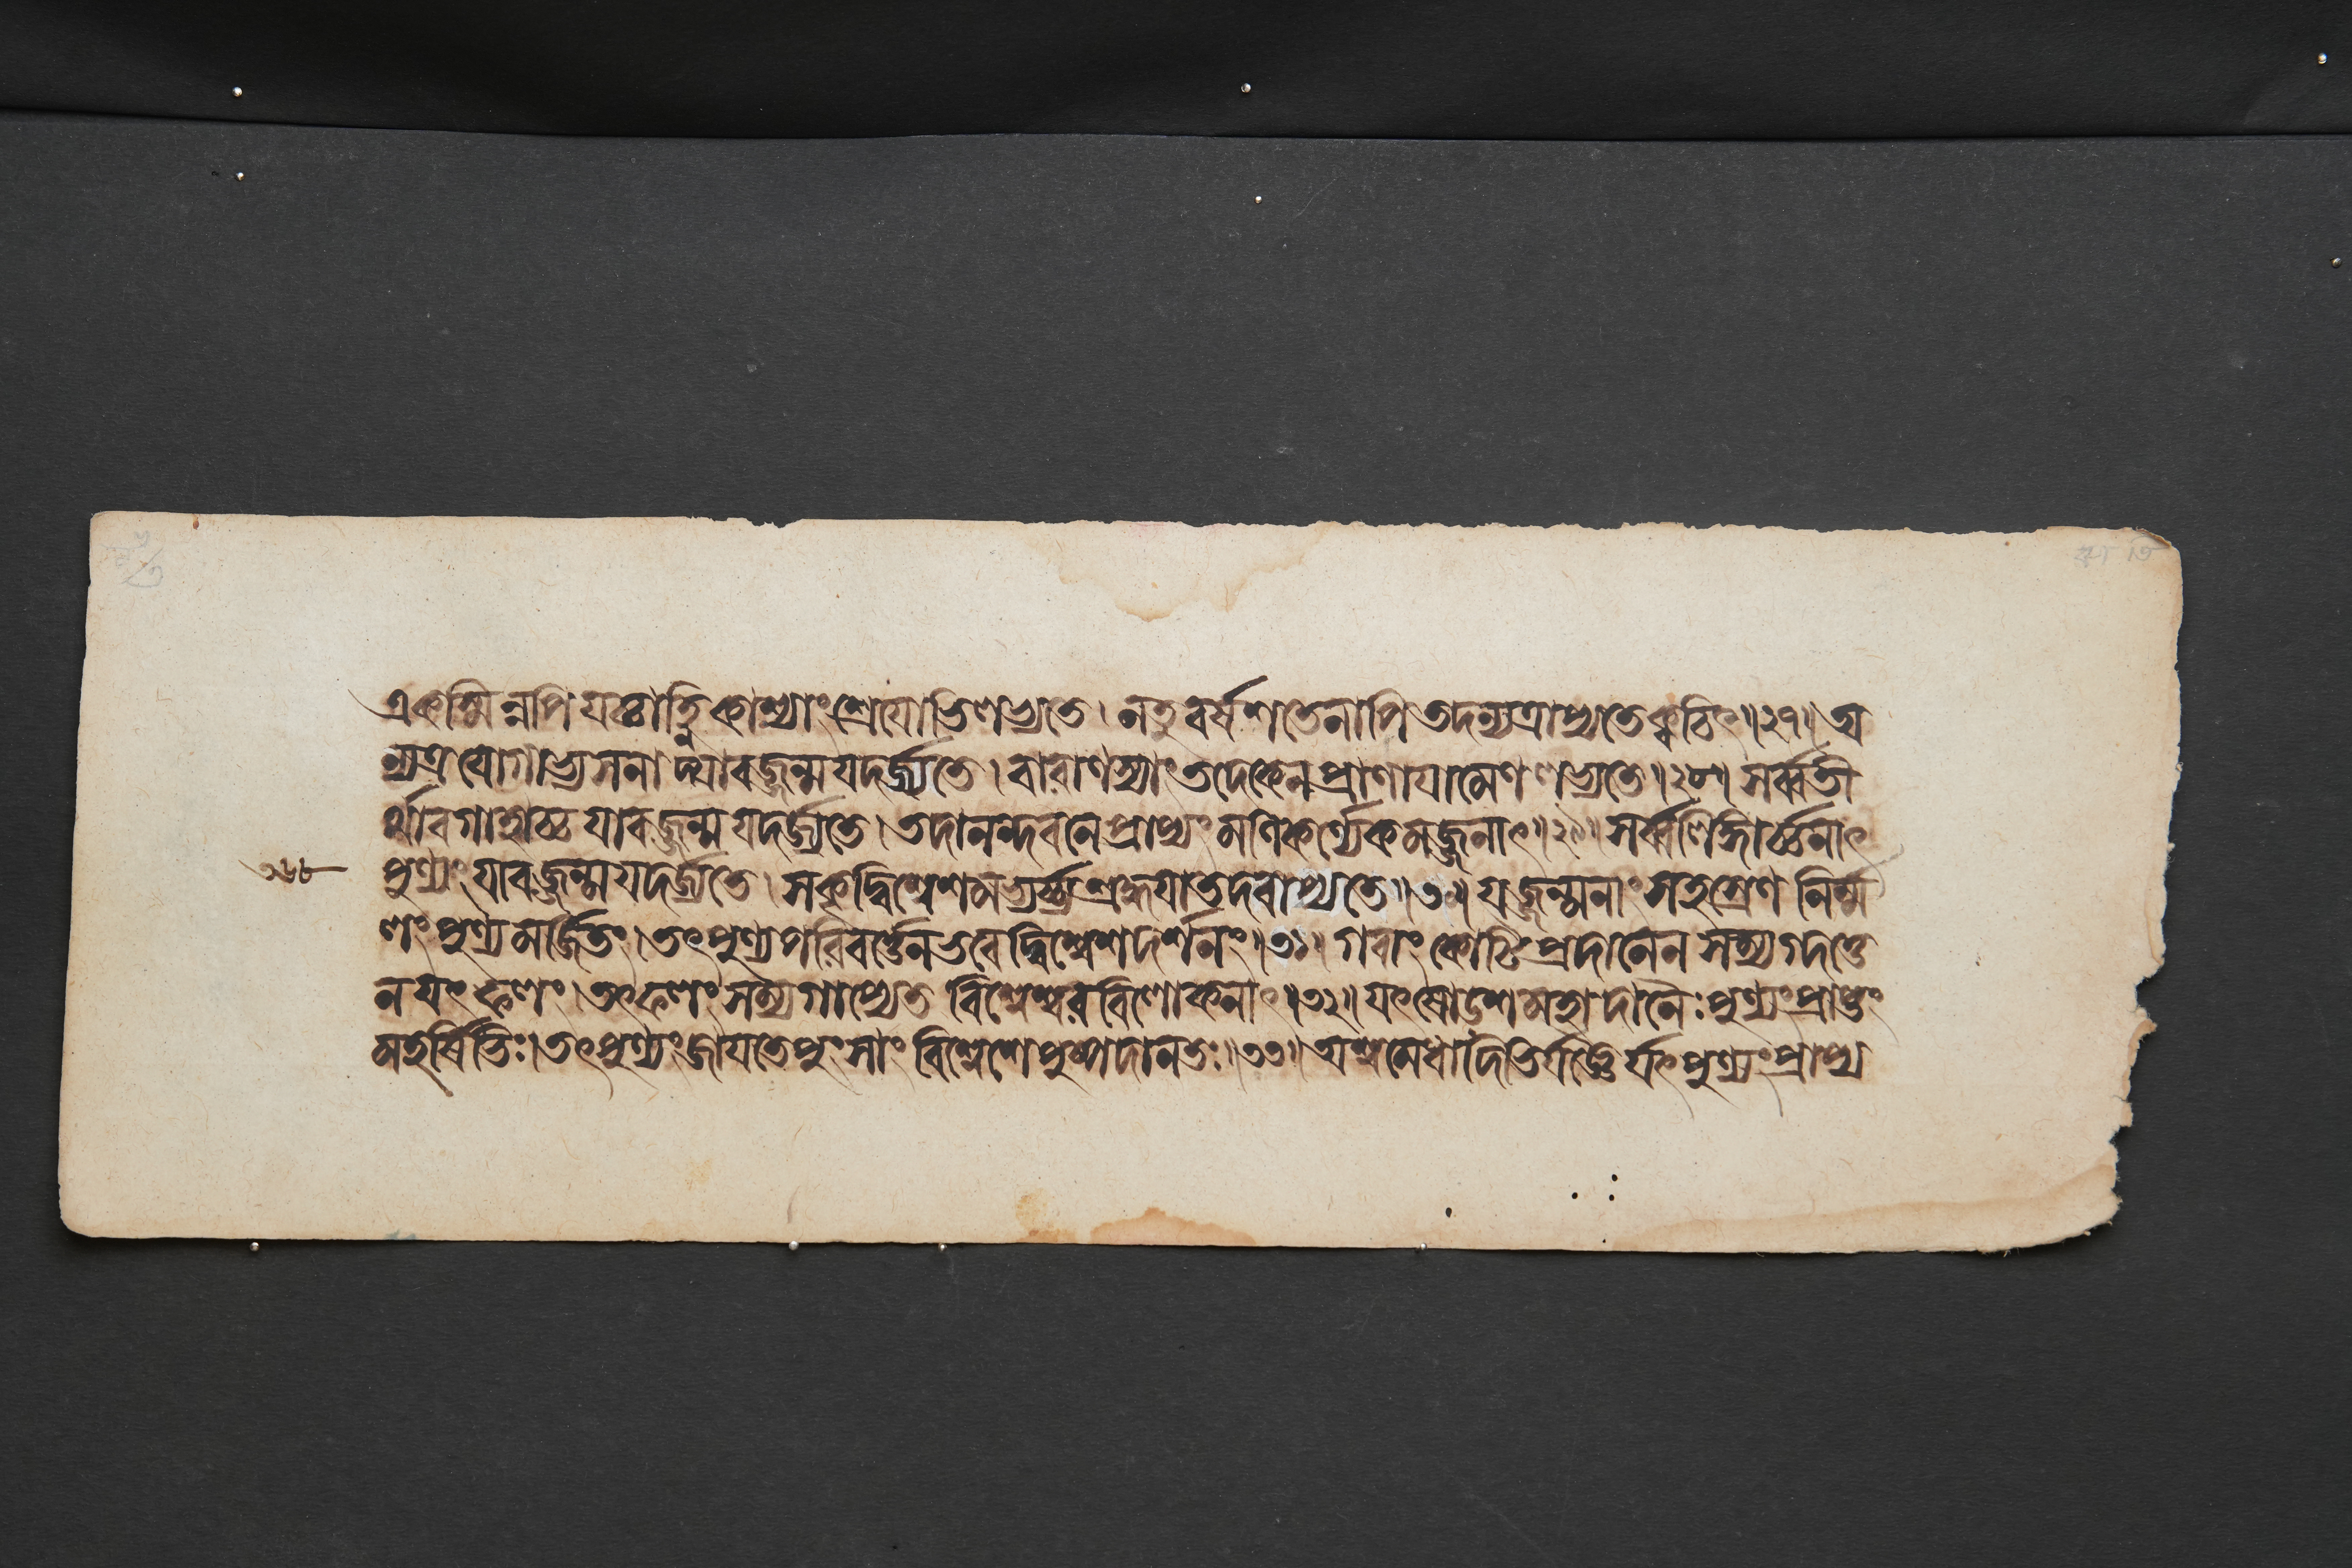 একস্মিন্নপি যচ্চাহ্নি কাশ্যাং শ্রেযোভিলভ্যতে । নতু বর্ষশতেনাপি তদন্যত্রাপ্যতে ক্বচিৎ ॥২৭॥ অ
ন্যত্র যোগাভ্যসনাদ্যাবজ্জন্ম যদর্জ্যতে । বারাণস্যাং তদেকেন প্রাণাযামেণ লভ্যতে ॥২৮॥ সর্ব্বতী
র্থাবগাহাচ্চ যাবজ্জন্ম যদর্জ্যতে । তদানন্দবনে প্রাপ্যং মণিকর্ণ্যেকমজ্জনাৎ ॥২৯॥ সর্ব্বলিঙ্গার্চ্চনাৎ
পুণ্যং যাবজ্জন্ম যদর্জ্যতে । সকৃদ্বিশ্বেশমভ্যর্চ্চ্য শ্রদ্ধযা তদবাপ্যতে ॥৩০॥ যজ্জন্মনাং সহস্রেণ নির্ম্ম
লং পুণ্যমর্জিতং । তৎপুণ্যপরিবর্ত্তেন ভবেদ্বিশ্বেশদর্শনং ॥৩১॥ গবাং কোটিপ্রদানেন সম্যগ্দত্তে
ন যৎ ফলং । তৎফলং সম্যগাপ্যেত বিশ্বেশ্বরবিলোকনাৎ ॥৩২॥ যৎ ষোডশমহাদানৈঃ পুণ্যং প্রাপ্তং
মহর্ষিভিঃ । তৎপুণ্যং জাযতে পুংসাং বিশ্বেশে পুষ্পদানতঃ ॥৩৩॥ অশ্বমেধাদিভির্যজ্ঞৈর্যৎপুণ্যং প্রাপ্য